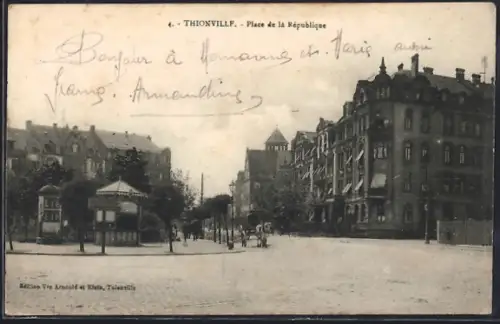 4. - THIONVILLE. - Place de la République
Bonjour à Momanne et Marie
Frang. Armandine
Edition Vve Arnould et Klein, Thionville